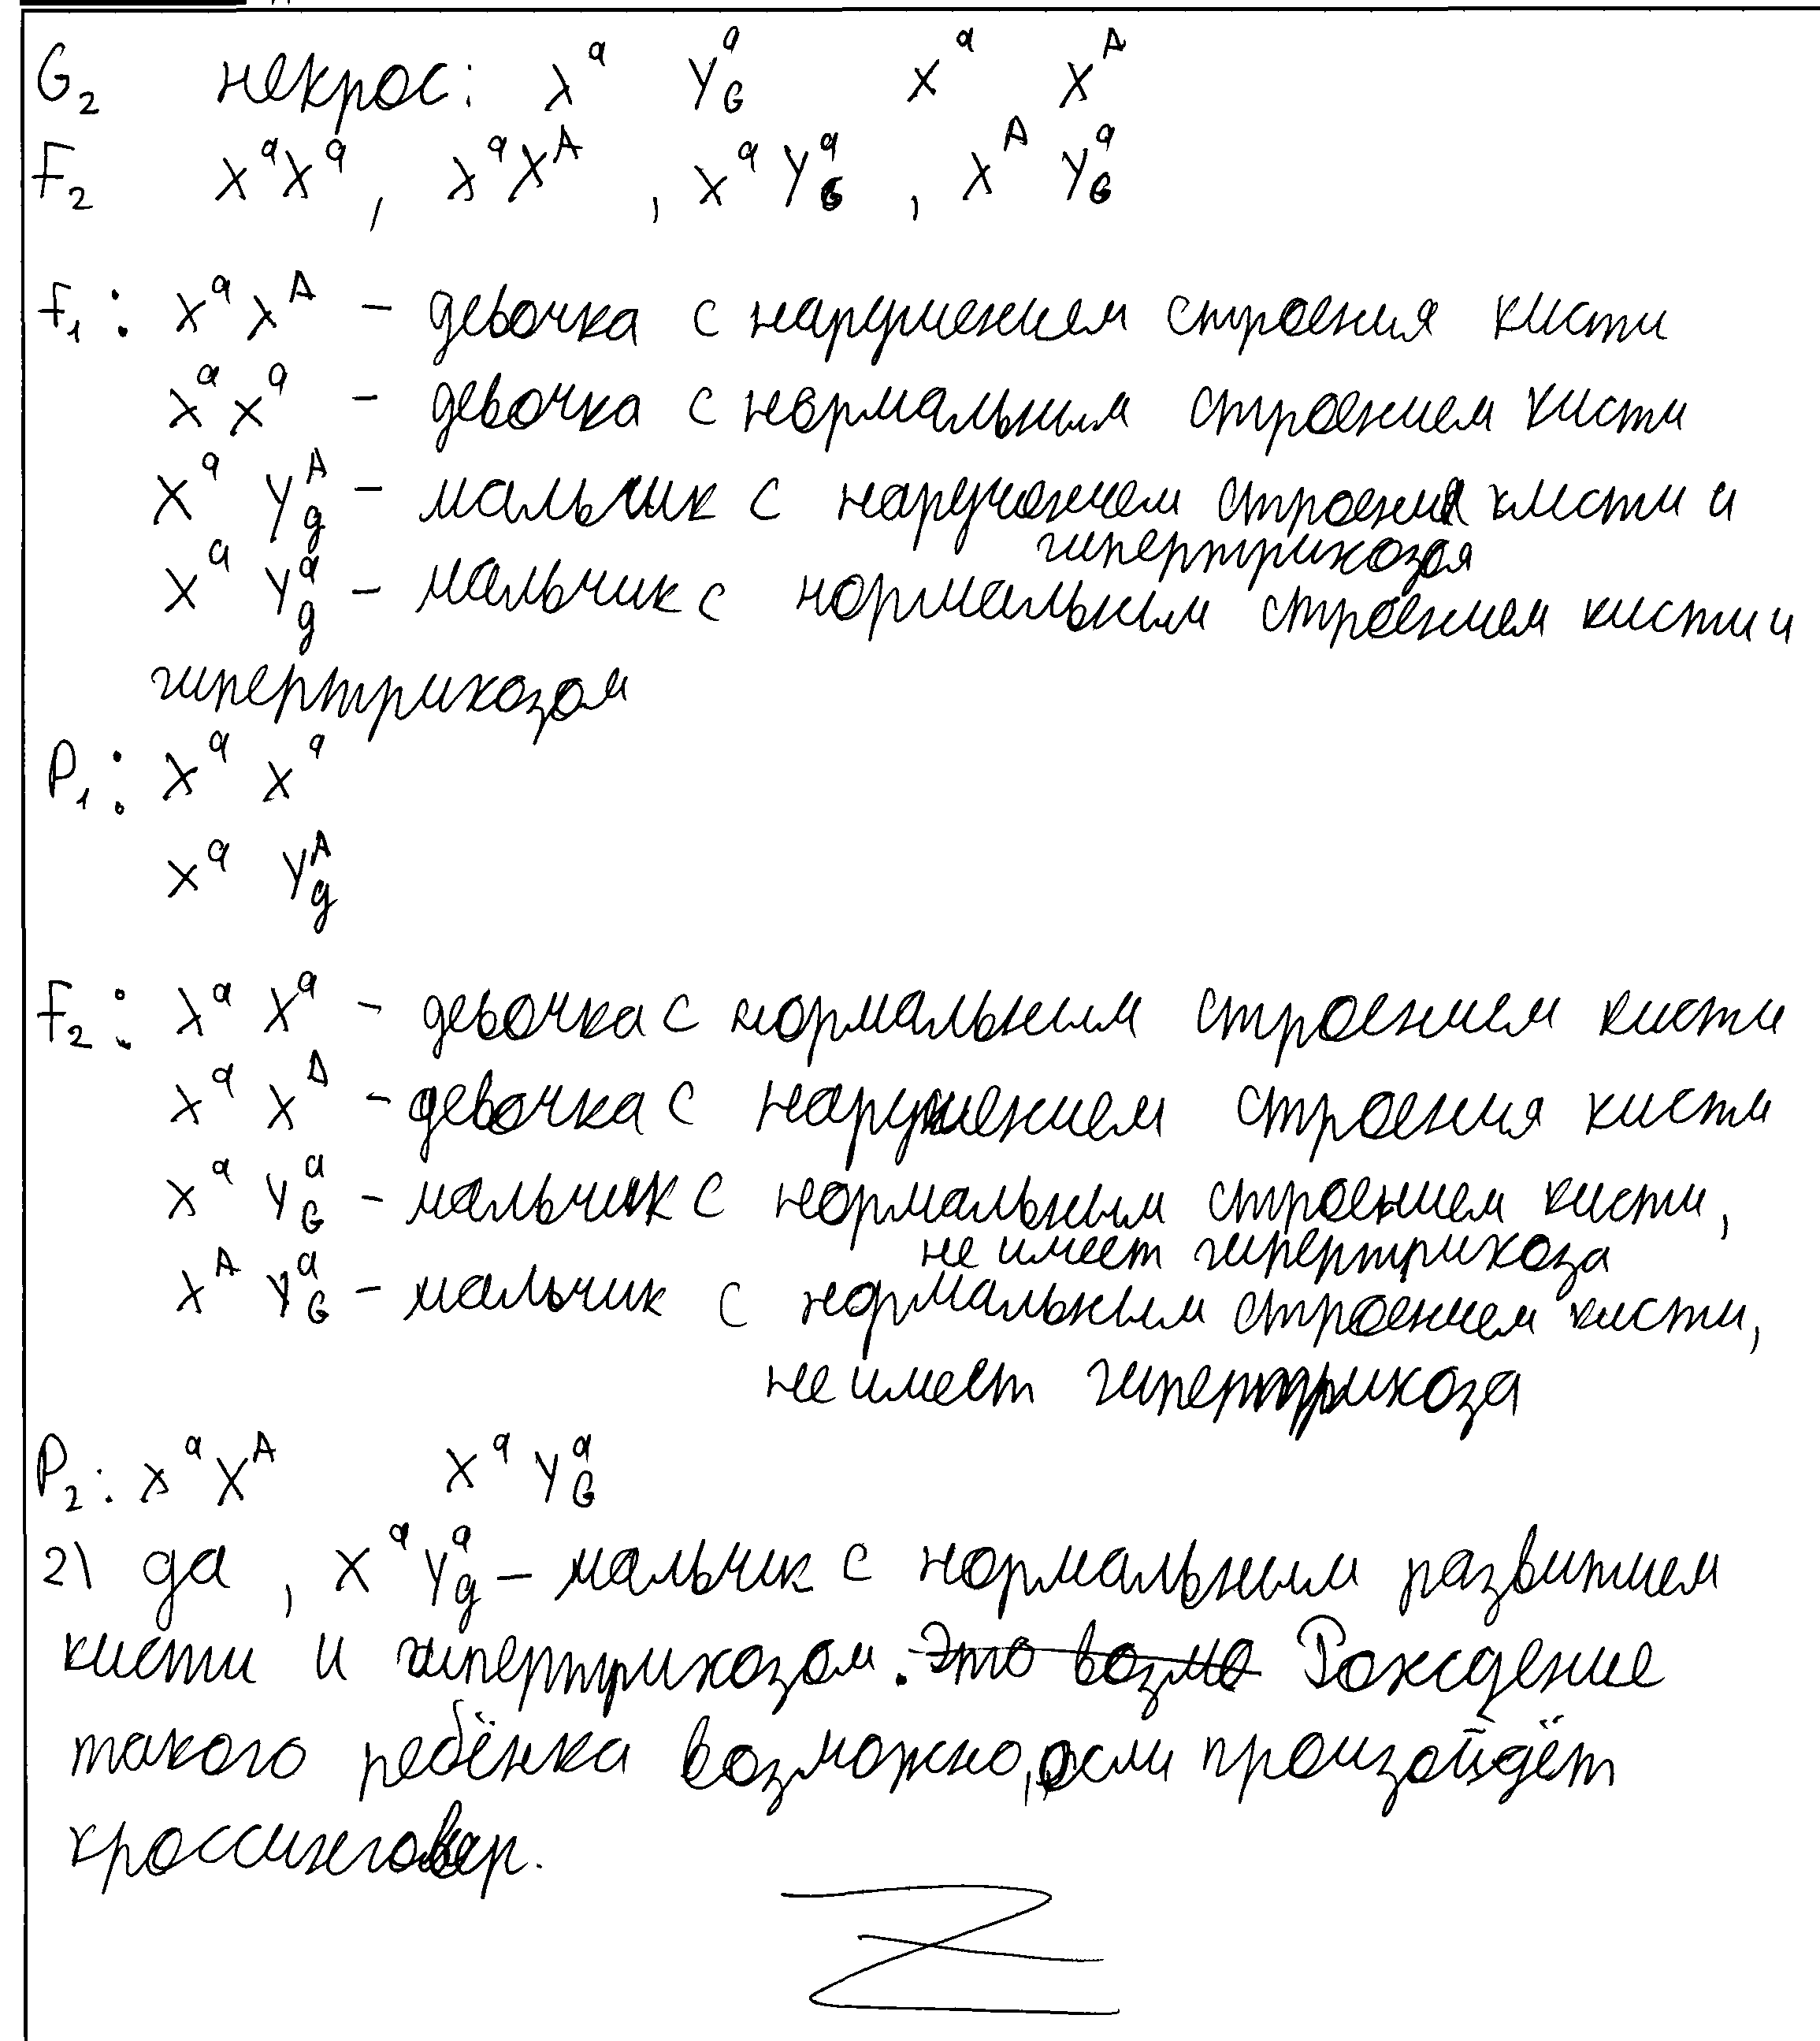 G₂ некрос: Xᵃ Y_Gᵃ Xᵃ Xᴬ
F₂ XᵃXᵃ, XᵃXᴬ, XᵃY_Gᵃ, Xᴬ Y_Gᵃ
F₁: Xᵃ Xᴬ – девочка с нарушением строения кисти
Xᵃ Xᵃ – девочка с нормальным строением кисти
Xᵃ Y_gᴬ – мальчик с нарушением строения кисти и
гипертрихозом
Xᵃ Y_gᵃ – мальчик с нормальным строением кисти и
гипертрихозом
P₁: Xᵃ Xᵃ
Xᵃ Y_gᴬ
F₂: Xᵃ Xᵃ – девочка с нормальным строением кисти
Xᵃ Xᴬ – девочка с нарушением строения кисти
Xᵃ Y_Gᵃ – мальчик с нормальным строением кисти,
не имеет гипертрихоза
Xᴬ Y_Gᵃ – мальчик с нормальным строением кисти,
не имеет гипертрихоза
P₂: XᵃXᴬ Xᵃ Y_Gᵃ
2) да, Xᵃ Y_gᵃ – мальчик с нормальным развитием
кисти и гипертрихозом. Это возмо Рождение
такого ребёнка возможно, если произойдёт
кроссинговер.